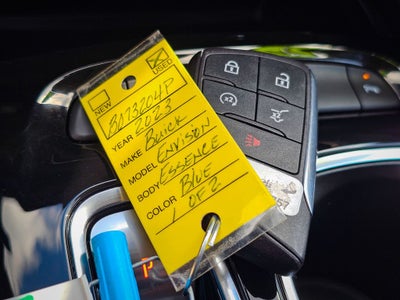 NEW
USED
BA73204P
YEAR 2023
MAKE Buick
MODEL ENVISION
BODY ESSENCE
COLOR Blue
1 OF 2
P